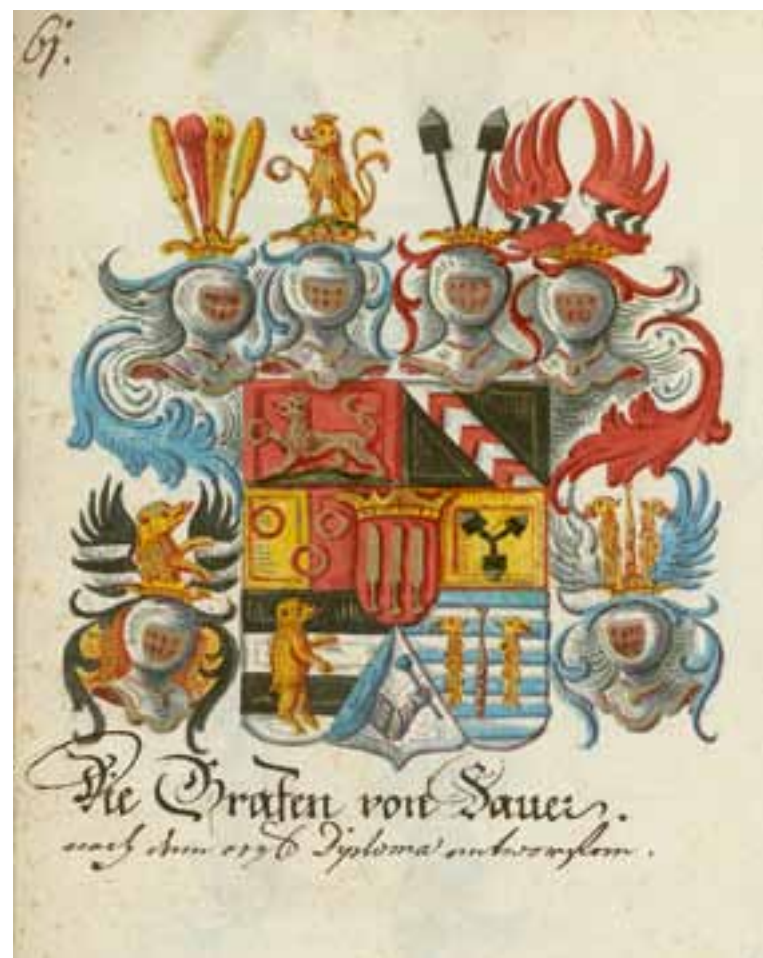 61.
Die Grafen von Sauer.
nach dem orig Diploma entworfen.